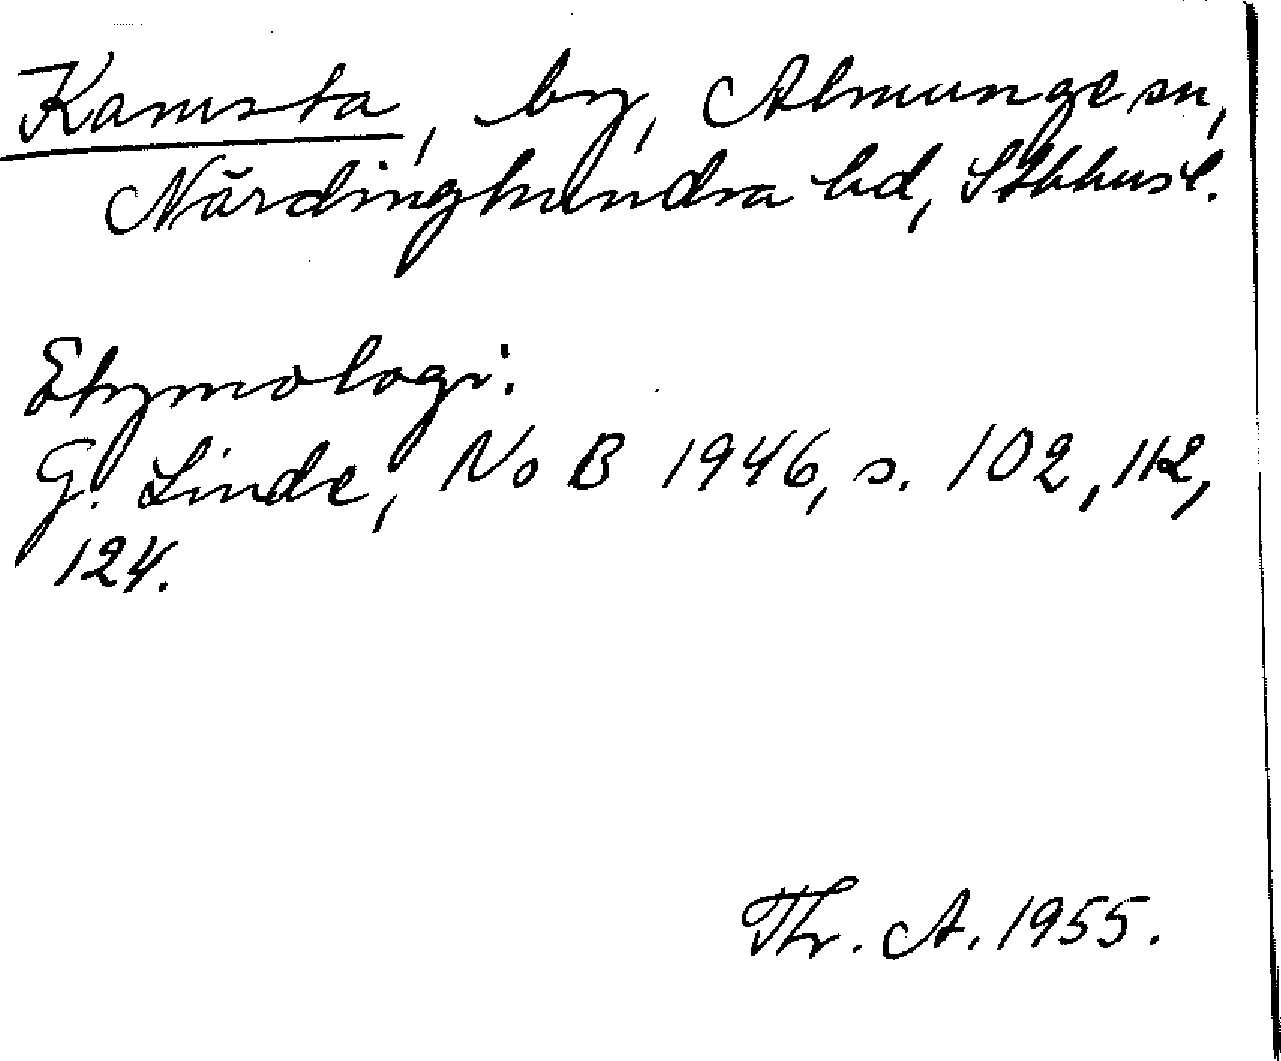 Kamsta, by, Almunge sn,
Närdinghundra hd, Sthhusl.
Etymologi:
G. Linde, NoB 1946, s. 102, 112,
124.
Thr. A. 1955.